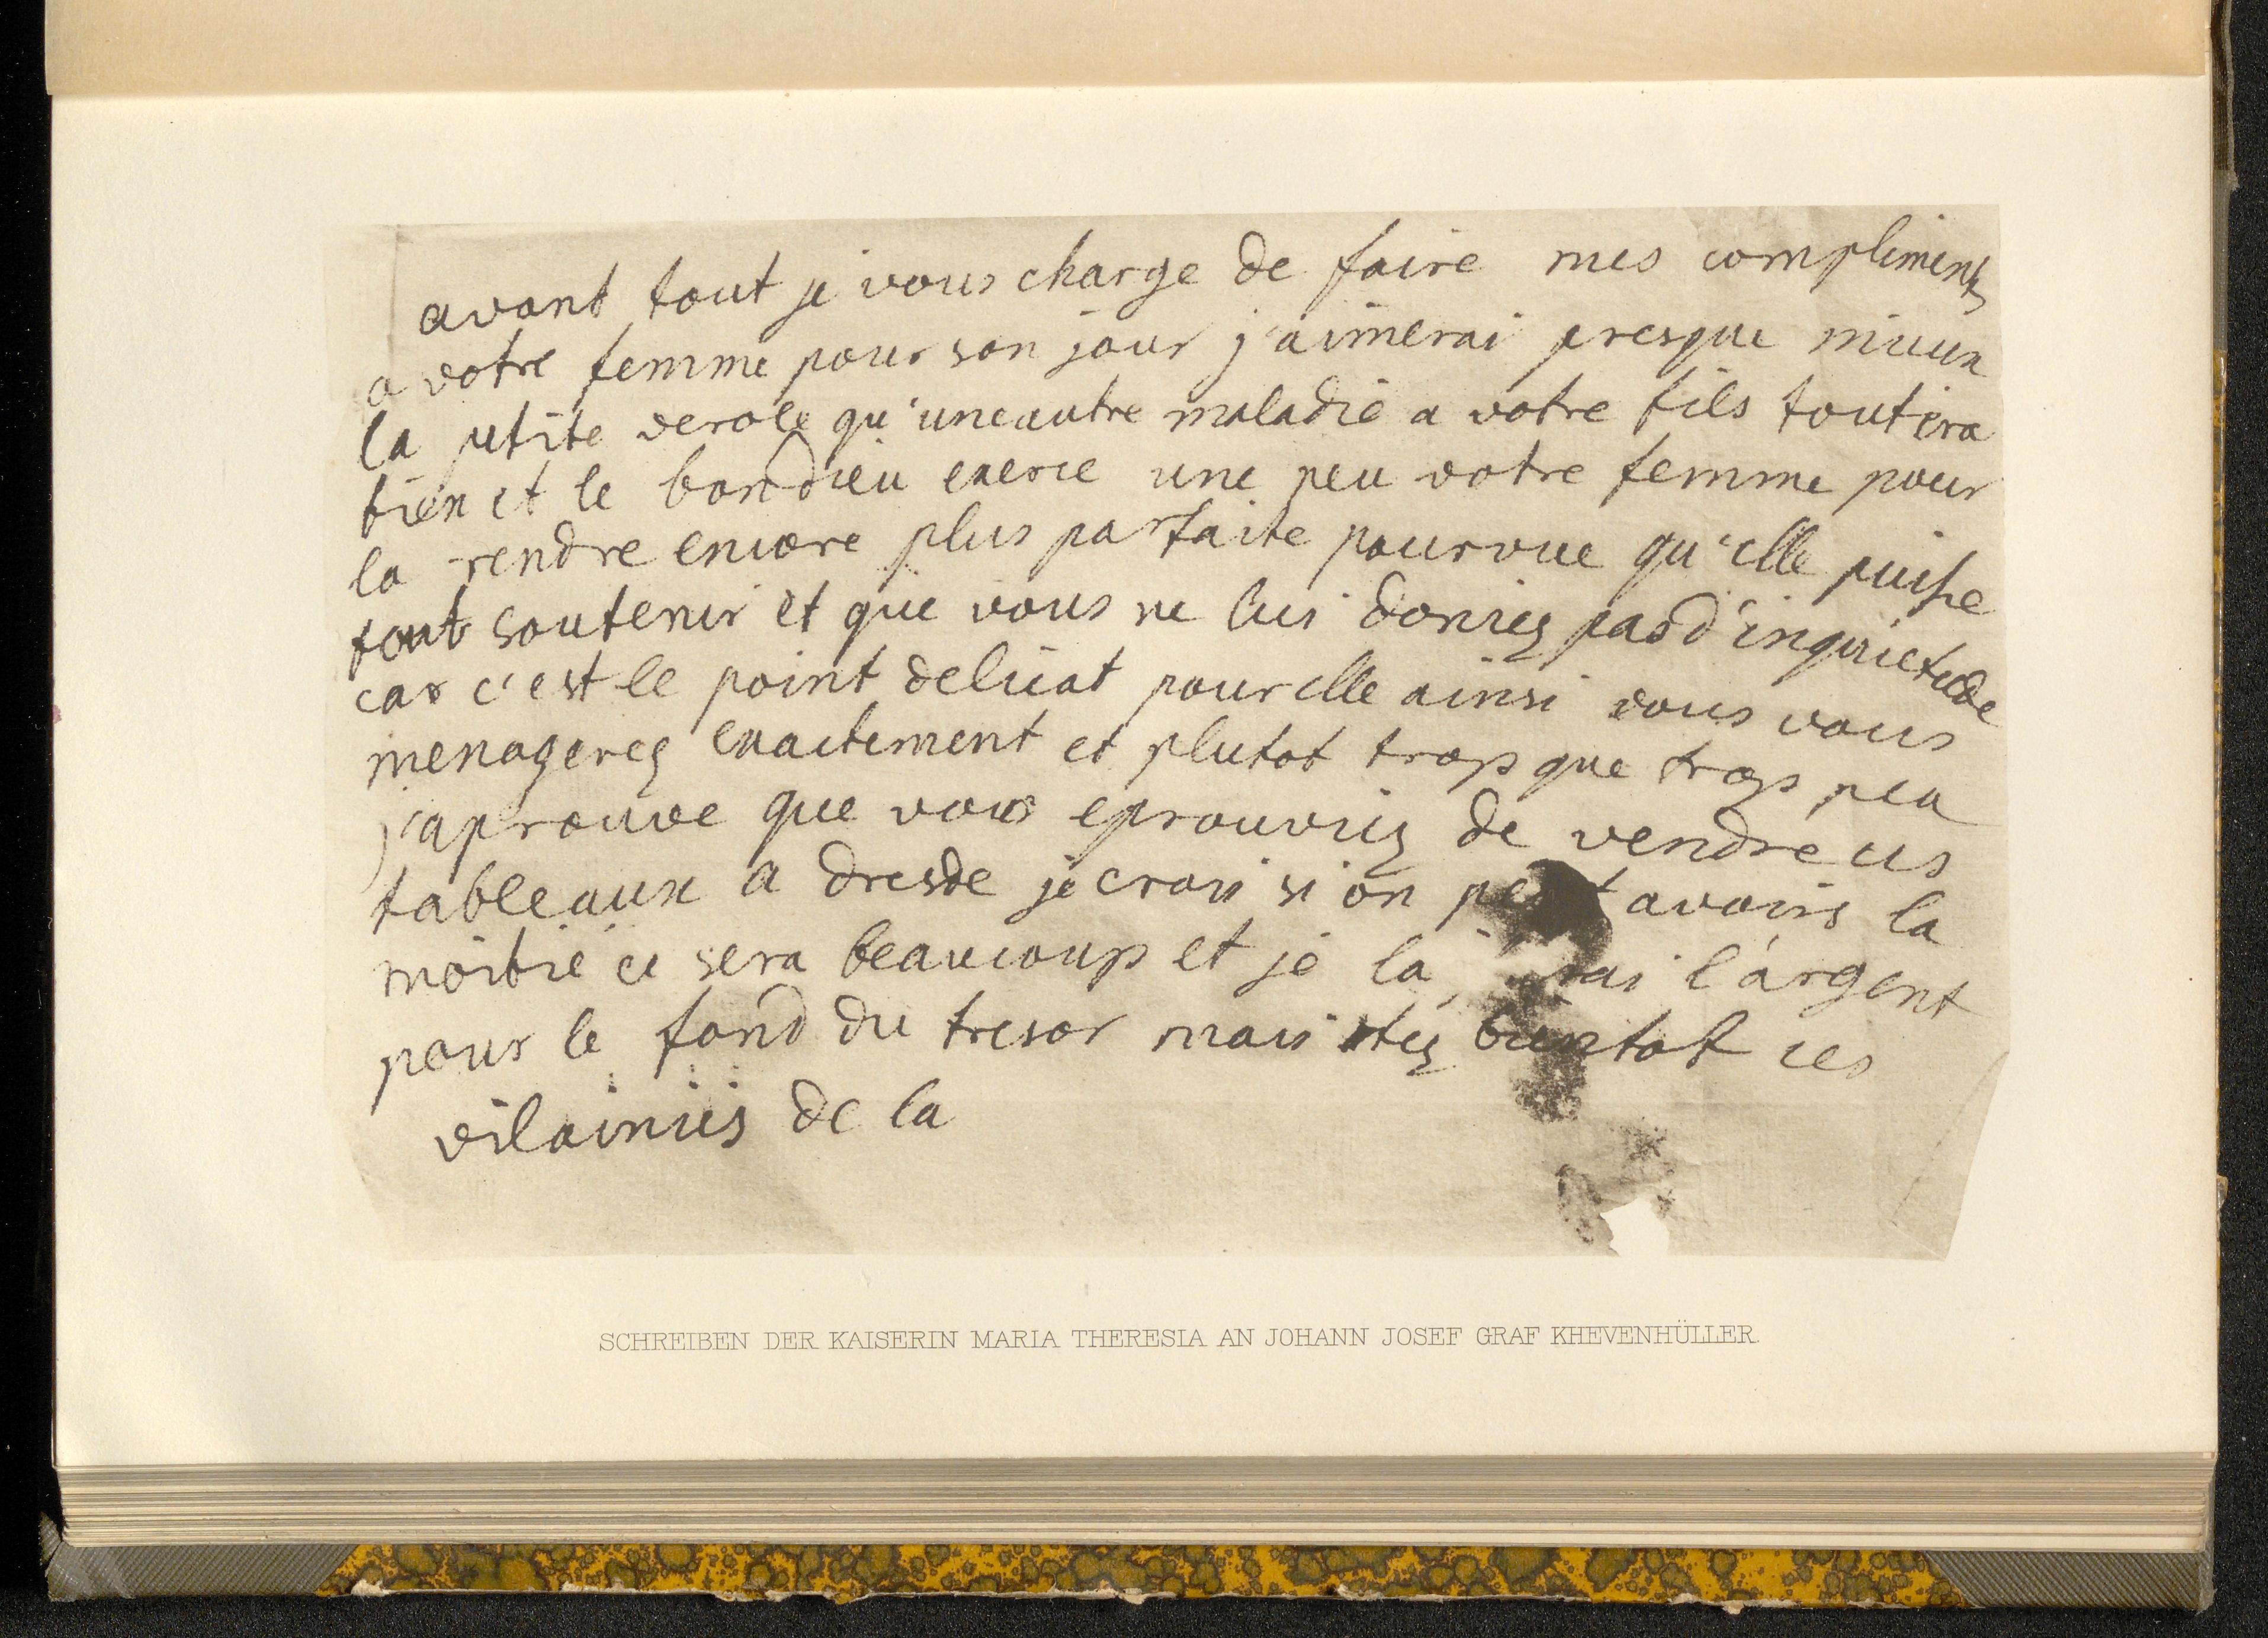 avant tout je vous charge de faire mes compliments
a votre femme pour son jour j'aimerai presque mieux
la petite verole qu'une autre maladie a votre fils tout ira
bien et le bon dieu exerce une peu votre femme pour
la rendre encore plus parfaite pourvue qu'elle puisse
tout soutenir et que vous ne lui doniez pas d'inquietude
car c'est le point delicat pour elle ainsi vous vous
menagerez exactement et plutot trop que trop peu
j'aprouve que vous eprouviez de vendre ces
tableaux a dresde je crois si on peut avoir la
moitié ce sera beaucoup et je la rai l'argent
pour le fond du tresor mais otez bientot ces
vilainies de la
SCHREIBEN DER KAISERIN MARIA THERESIA AN JOHANN JOSEF GRAF KHEVENHÜLLER.